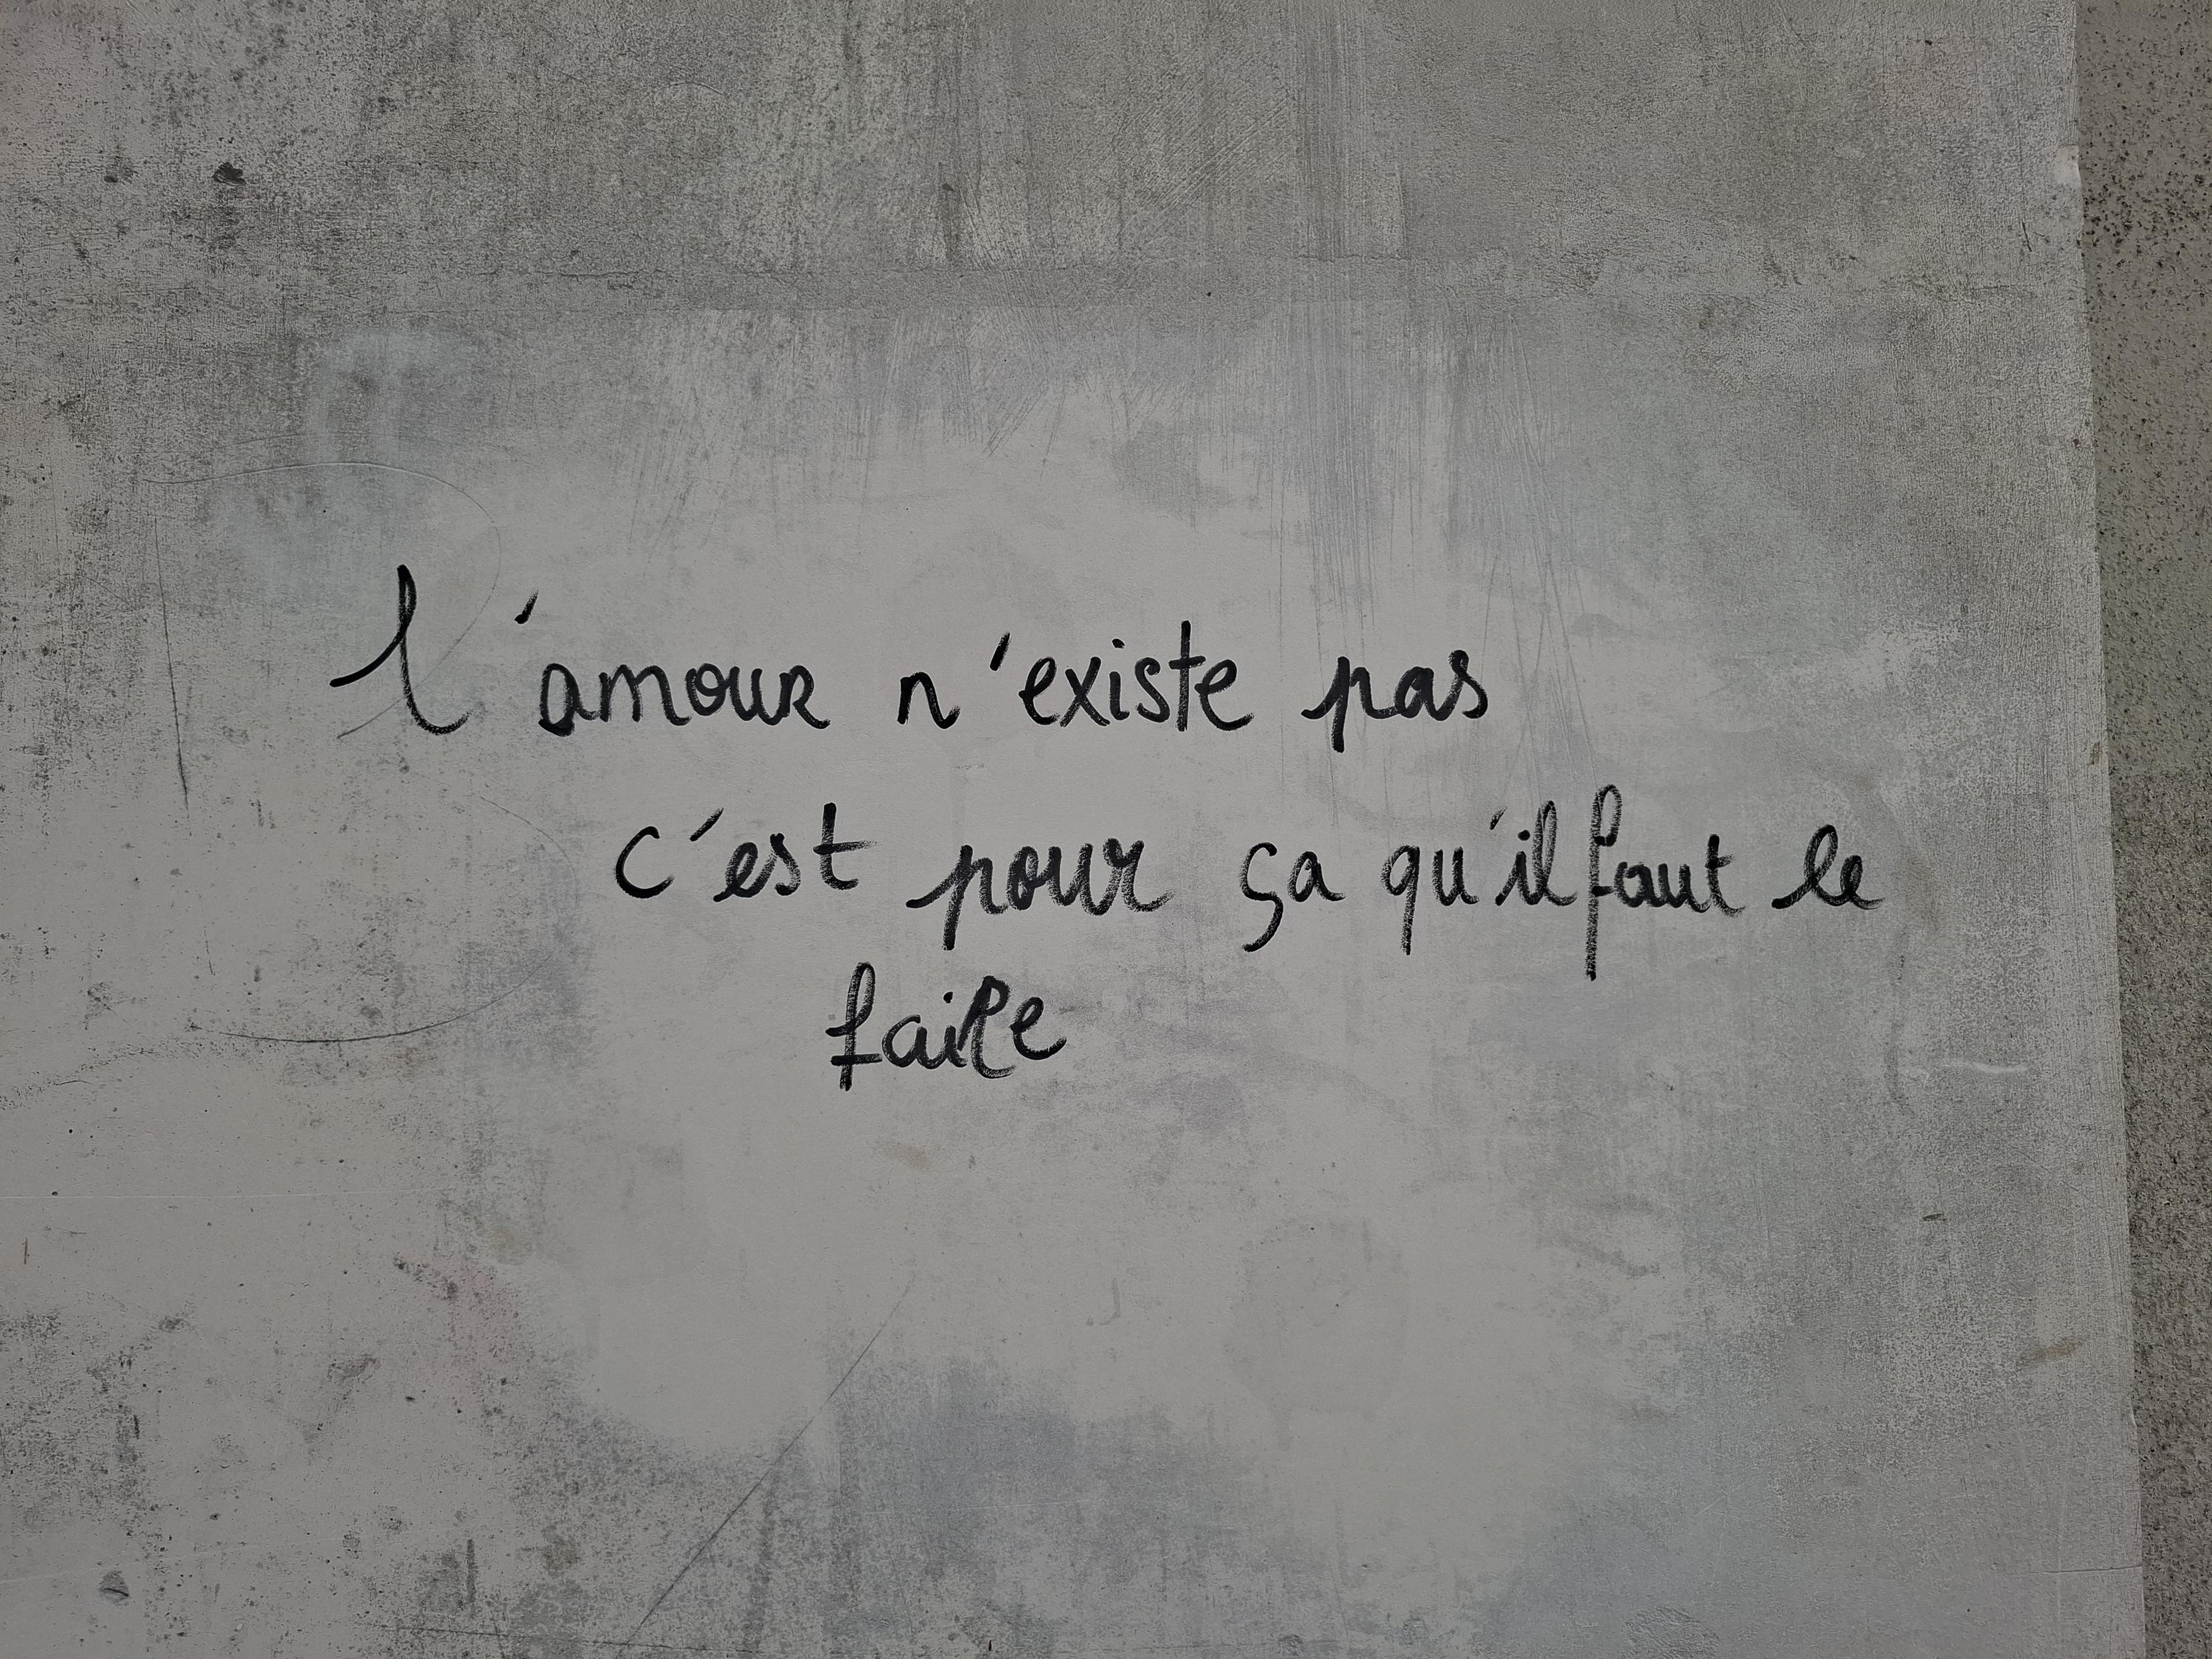 l'amour n'existe pas
c'est pour ça qu'il faut le
faire